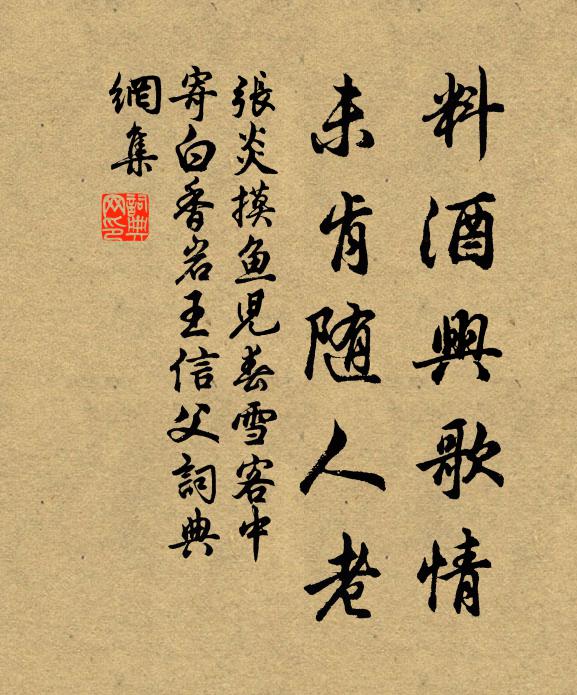 料酒興歌情
未肯随人老
張炎摸鱼児春雪客中
寄白香岩王信父詞典
網集
詞典网印